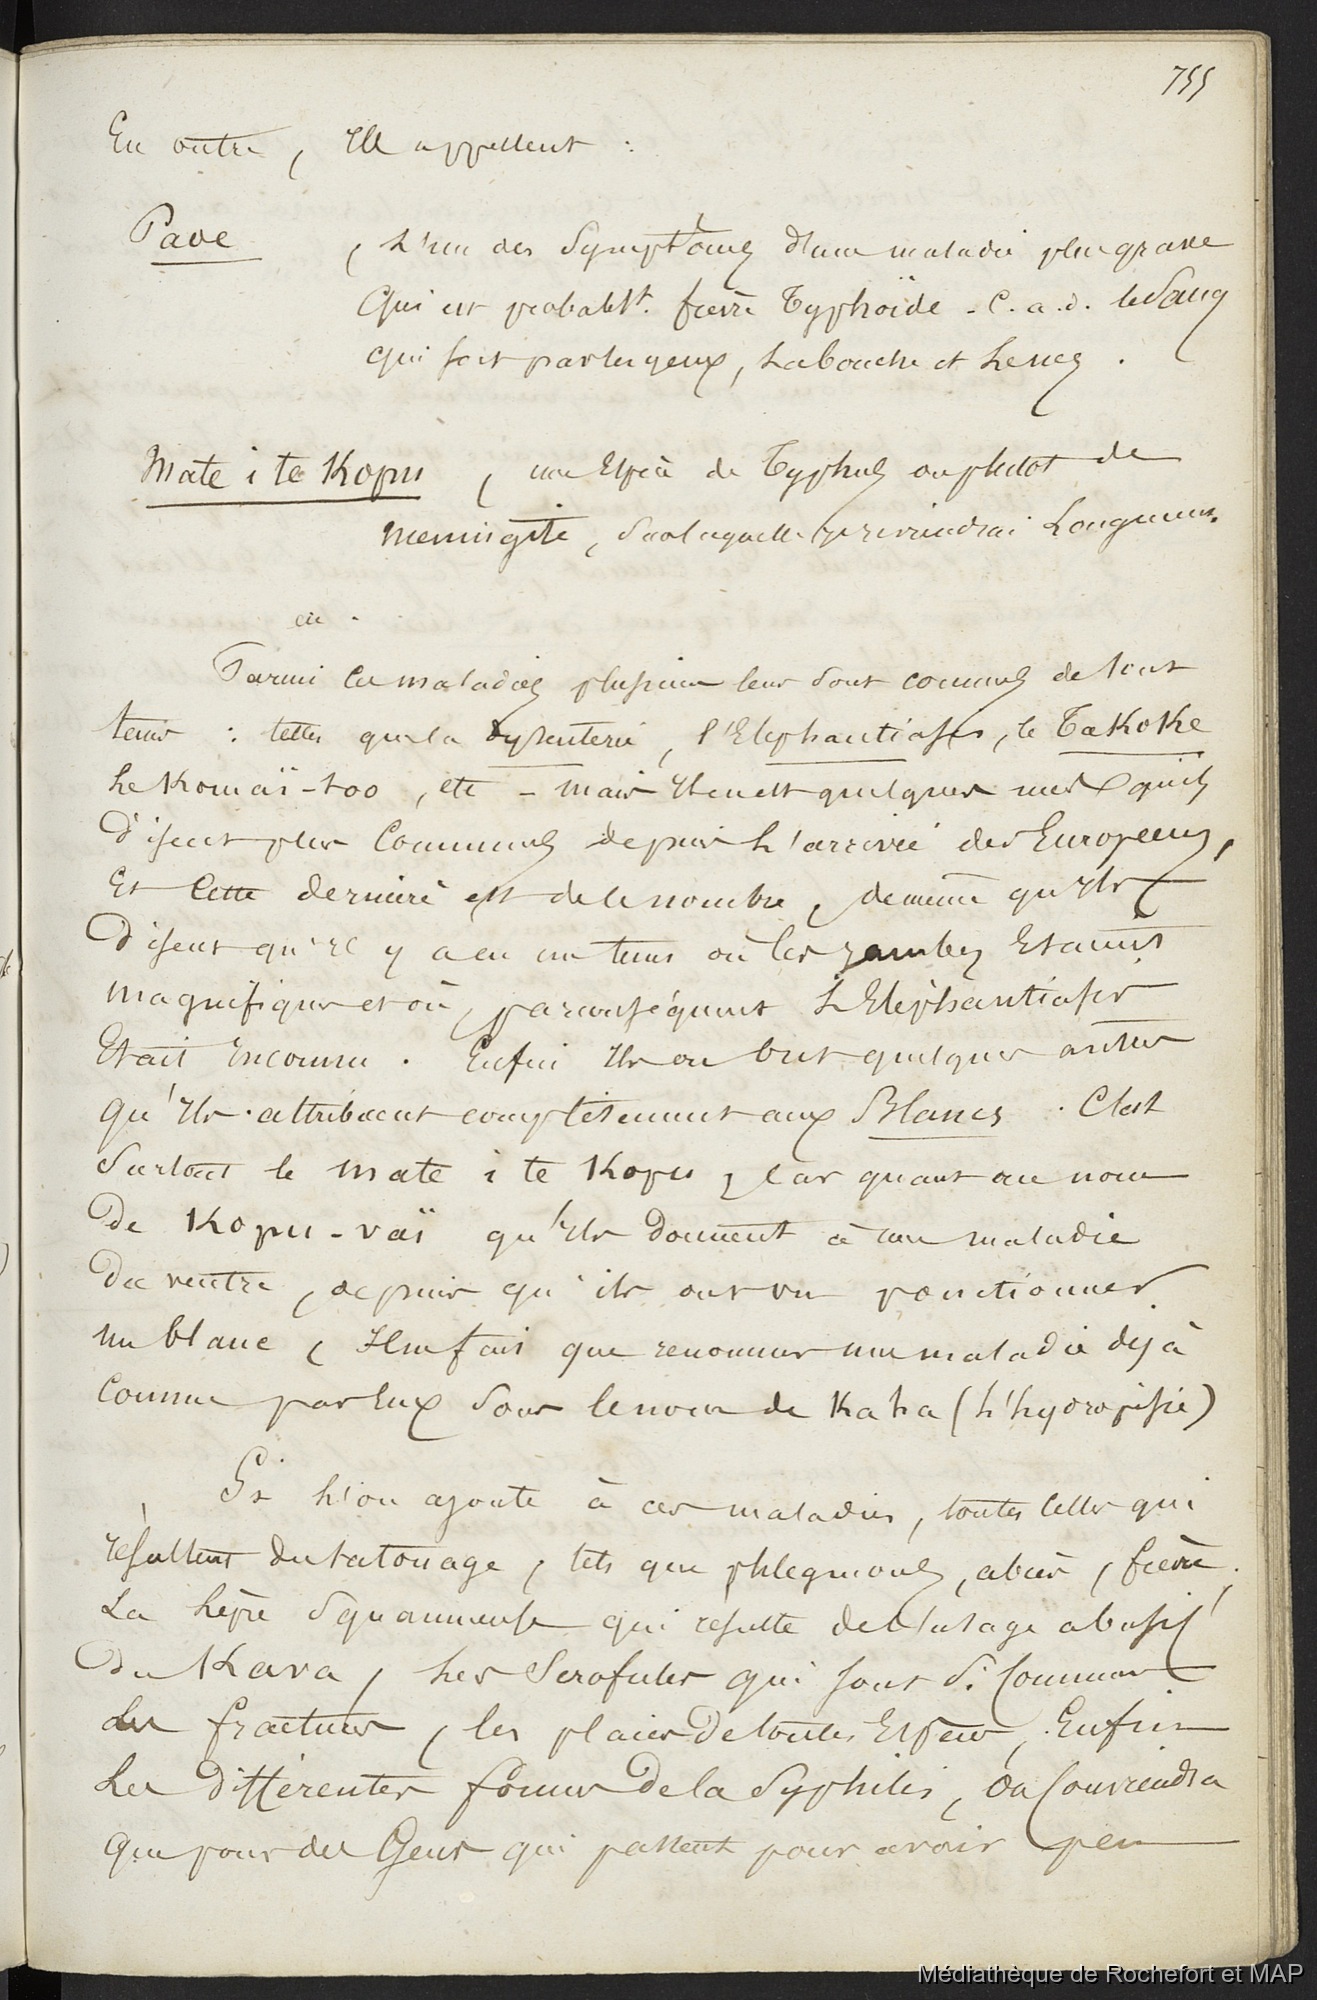 755
En outre, Ils appellent :
Pave , L'un des Symptômes d'une maladie plus grave
Qui est probablt. fièvre Typhoïde - C. a. d. le Sang
qui sort par les yeux, La bouche et Le nez .
Mate i te Kopu , une Espèce de Typhus ou plutot de
meningite, sur laquelle je reviendrai Longuement.
Parmi les maladies plusieurs leur sont connues de tout
tems : telles que la dysenterie, l'Elephantiasis, le TaKoKe
Le Komaï-too , etc - mais Il en est quelques unes qu'ils
disent plus Communes depuis L'arrivée des Européens,
Et Cette dernière est de le nombre, de même qu'Ils
Disent qu'Il y a eu un tems où les jambes Etaient
magnifiques et où, par conséquent L'Eléphantiasis
Etait Inconnu . Enfin Ils en ont quelques autres
qu'Ils attribuent complètement aux Blancs . C'est
Surtout le mate i te Kopu , Car quant au nom
De Kopu-vaï qu'Ils Donnent à une maladie
Du ventre, depuis qu'ils ont vu ponctionner
un blanc, Il ne fait que renommer une maladie déjà
Connue par Eux Sous le nom de Kaha (L'hydropisie)
Si L'on ajoute à ces maladies, toutes Celles qui
résultent du tatouage, tels que phlegmons, abcès, fièvre,
La lèpre Squammeuse qui résulte de l'usage abusif
Du Kava, Les Scrofules qui sont Si Communes
Les fractures, les plaies De toutes Espèces, Enfin
Les Différentes formes De la Syphilis, on Conviendra
Que pour des Gens qui passent pour avoir peu
Médiathèque de Rochefort et MAP